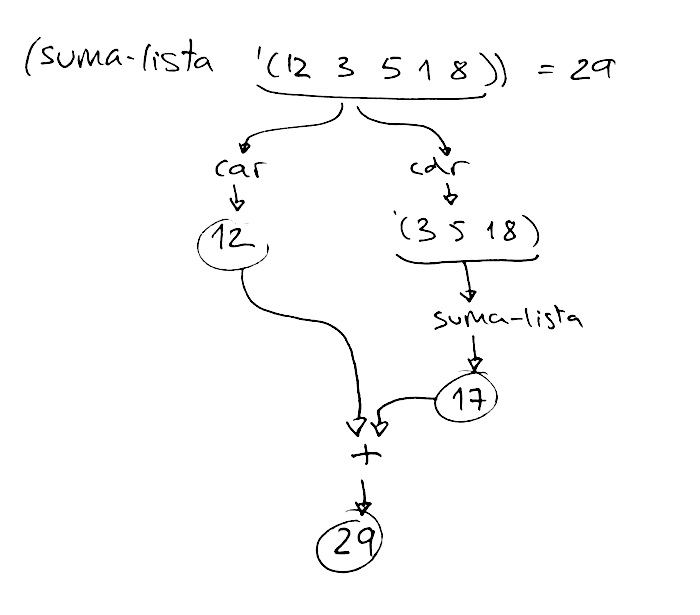 (suma-lista '(12 3 5 1 8)) = 29
car cdr
12 '(3 5 1 8)
suma-lista
17
+
29